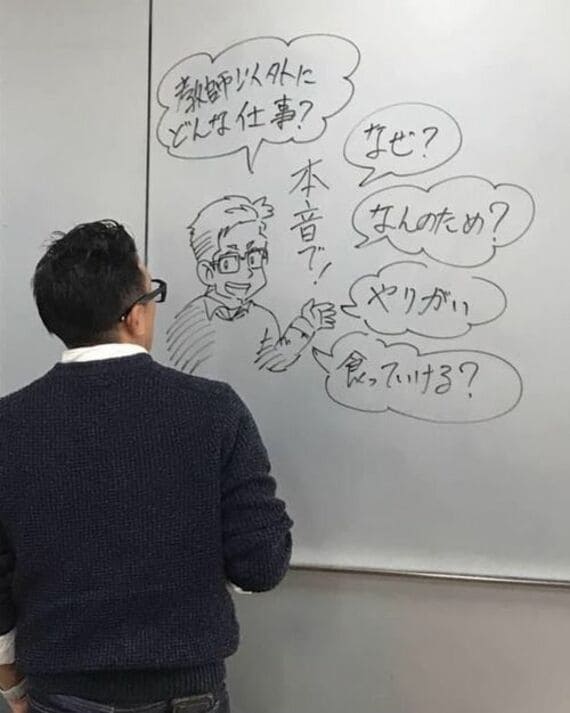 教師以外に
どんな仕事?
本音で!
なぜ?
なんのため?
やりがい
食っていける?